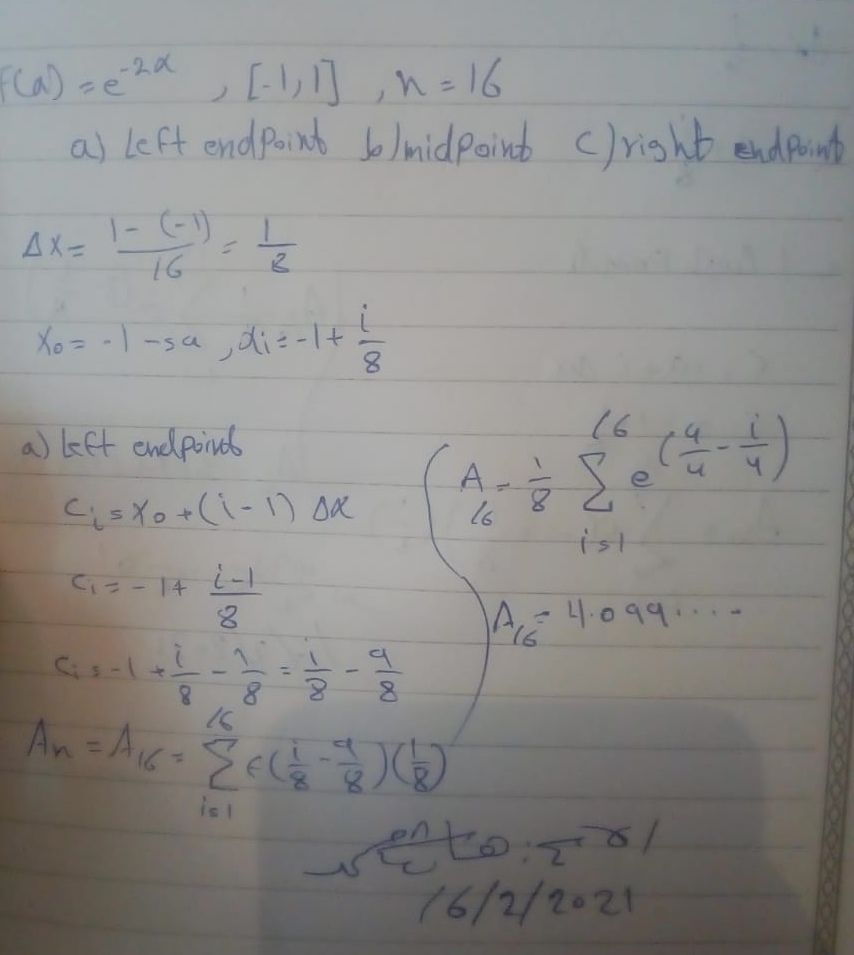 f(x) = e^-2x , [-1,1] , n = 16
a) Left endpoint b) midpoint c) right endpoint
Δx = 1-(-1)/16 = 1/8
x₀ = -1 → a , xᵢ = -1 + i/8
a) Left endpoint
Cᵢ = x₀ + (i-1) Δx
Cᵢ = -1 + i-1/8
Cᵢ = -1 + i/8 - 1/8 = i/8 - 9/8
Aₙ = A₁₆ = 16 Σ i=1 f(i/8 - 9/8)(1/8)
A₁₆ = 1/8 16 Σ i=1 e^(9/4 - i/4)
A₁₆ = 4.099....
16/2/2021